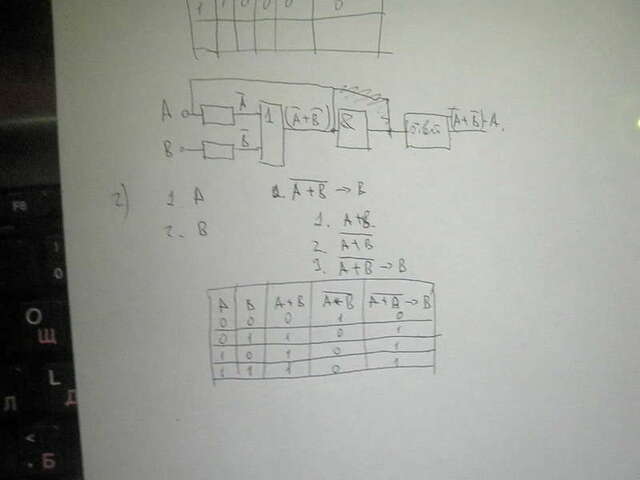 1 1 0 0 0 0
A Ā 1 (Ā+B̄) &
B B̄
2) 1. A
2. B
A̅+̅B̅ → B
1. A+B
2. A̅+̅B̅
3. A̅+̅B̅ → B
A B A+B A̅+̅B̅ → B
0 0 0 1 0
0 1 1 0 1
1 0 1 0 1
1 1 1 0 1
F8
0
О
Щ
L
Л Д
<
Б